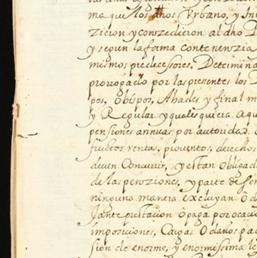 ma que los dhos Urbano, y Inn
zicion y conzedicion al dho P
y segun la forma contenenzia
mismos predecessores. Determina
provogado por las presentes los
pos, Obispos, Abades y final m
y Regular y qualesquiera. a qu
pensiones annuas por autoridad
fructos rentas, prouentos, derechos
deuen Conuenir, y estan Obligado
de las penziones, y parte de
ninguna manera excluyan. O d
stante euitacion O paga por ocas
imposiciones, Cargas O daños pa
sion de enorme, y enormissima le